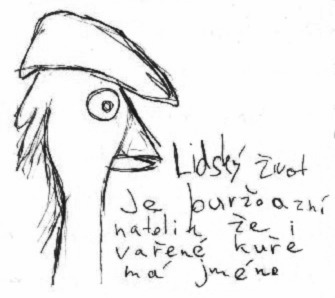 Lidský život
Je buržoazní
natolik že i
vařené kuře
má jméne